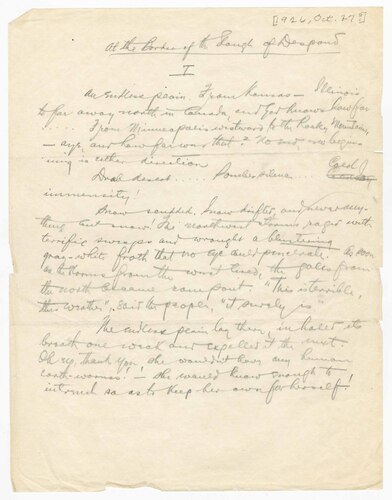 [1926, Oct. 27?]
At the Border of the Slough of Despond
I
An endless plain. From Kansas — Illinois
to far away north in Canada, and God knows how far
.... From Minneapolis westward to the Rocky Mountains,
— aye, and how far was that? No end nor begin-
ning in either direction
Drab desert... Sombre silence.... God!
immensity!
Snow sculpted, Snow drifted, and never any-
thing but snow. The northwest storms raged with
terrific and wrought a blustering
gray-white froth that no eye could penetrate. As soon
as storms from the west tired, the gales from
the north became rampant. "This is terrible,
this weather", said the people, "it surely is"
The endless plain lay there, inhaled its
breath one week and expelled it the next.
Oh no, thank you! she wouldn't have any human
earth-worms! — she would know enough to
intrench so as to keep her own for herself!